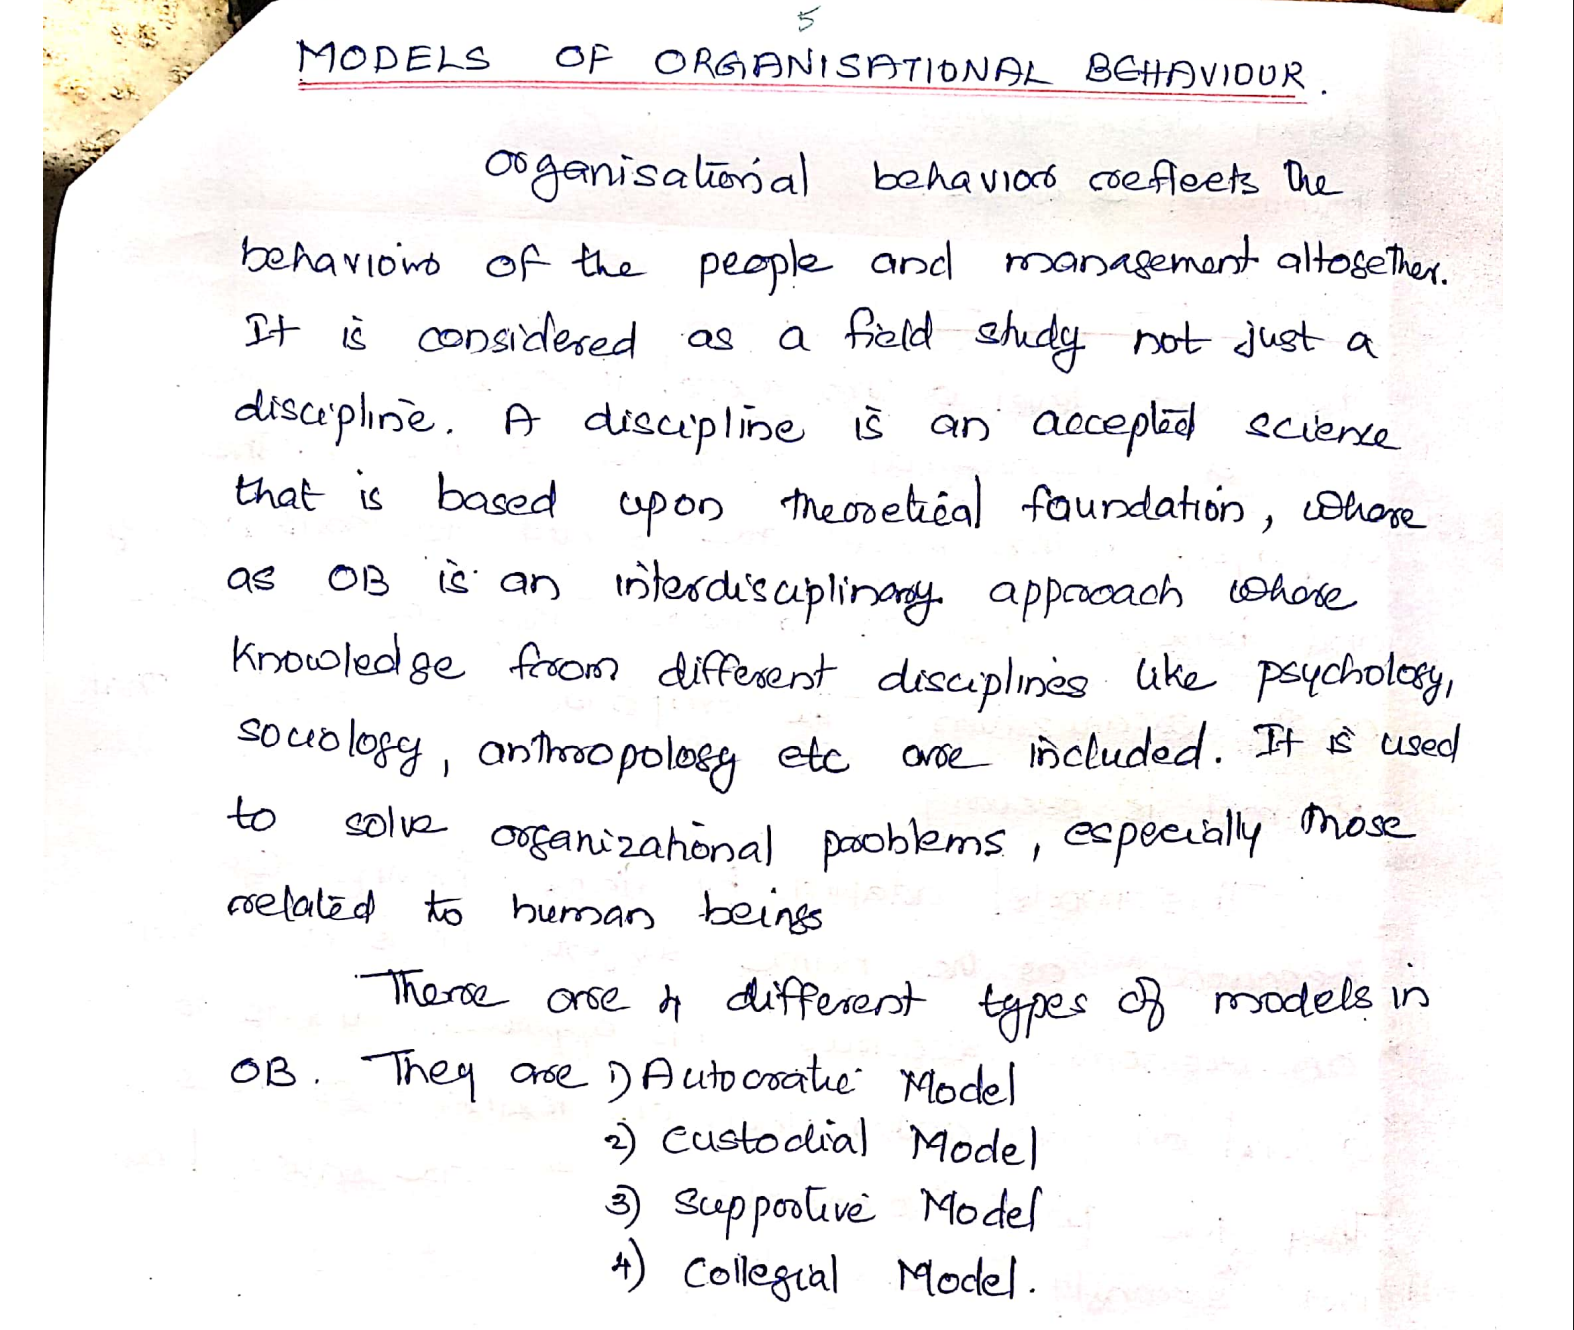 5
MODELS OF ORGANISATIONAL BEHAVIOUR.
Organisational behavior reflects the
behaviour of the people and management altogether.
It is considered as a field study not just a
discipline. A discipline is an accepted science
that is based upon theoretical foundation, where
as OB is an interdisciplinary approach where
knowledge from different disciplines like psychology,
sociology, anthropology etc are included. It is used
to solve organizational problems, especially those
related to human beings
There are 4 different types of models in
OB. They are 1) Autocratic Model
2) Custodial Model
3) Supportive Model
4) Collegial Model.